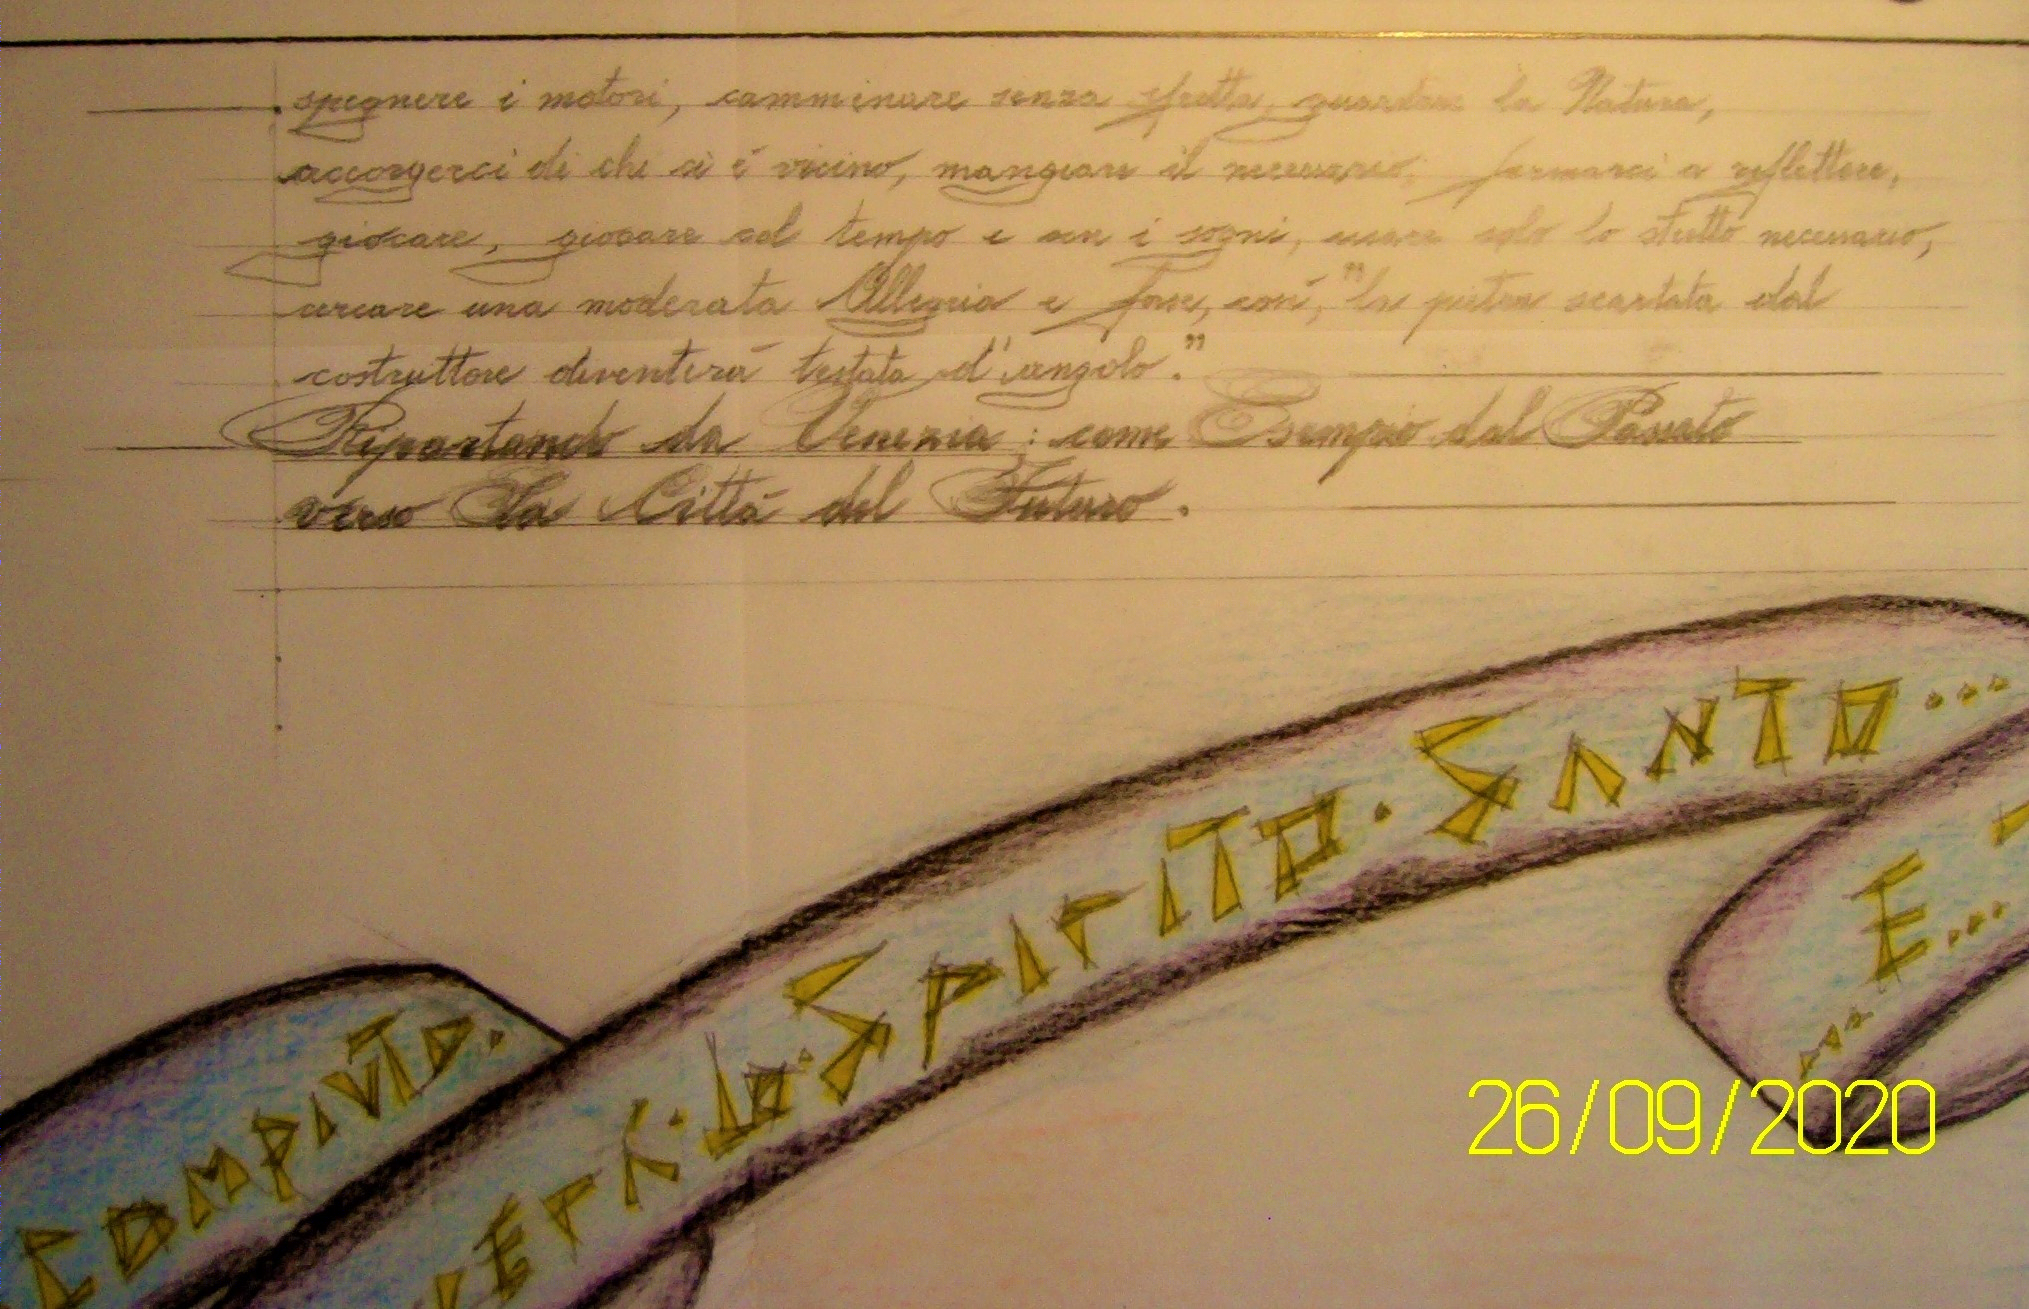 spegnere i motori, camminare senza fretta, guardare la Natura,
accorgerci di chi ci è vicino, mangiare il necessario, fermarci a riflettere,
giocare, giocare col tempo e con i sogni, usare solo lo stretto necessario,
cercare una moderata Allegria e forse, così, "la pietra scartata dal
costruttore diventerà testata d'angolo."
Ripartendo da Venezia: come Esempio dal Passato
verso La Città del Futuro.
COMPIUTO.
VERRÀ·LO·SPIRITO·SANTO...
...E...
26/09/2020